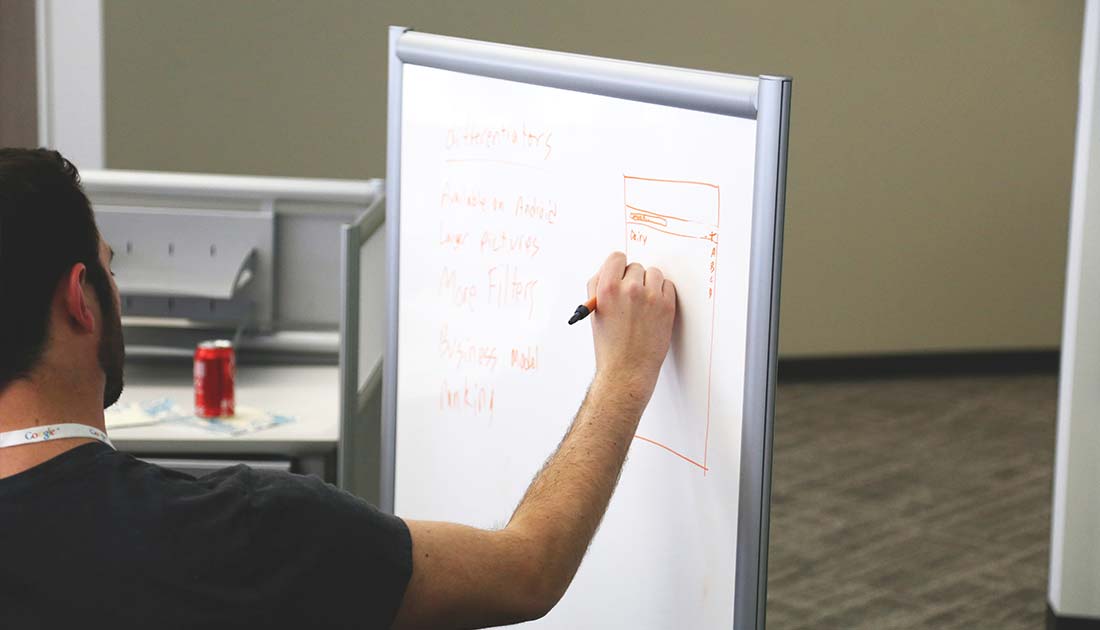 Differentiators
Available on Android
Larger pictures
More Filters
Business model
Ranking
Dairy
A
B
C
D
Google